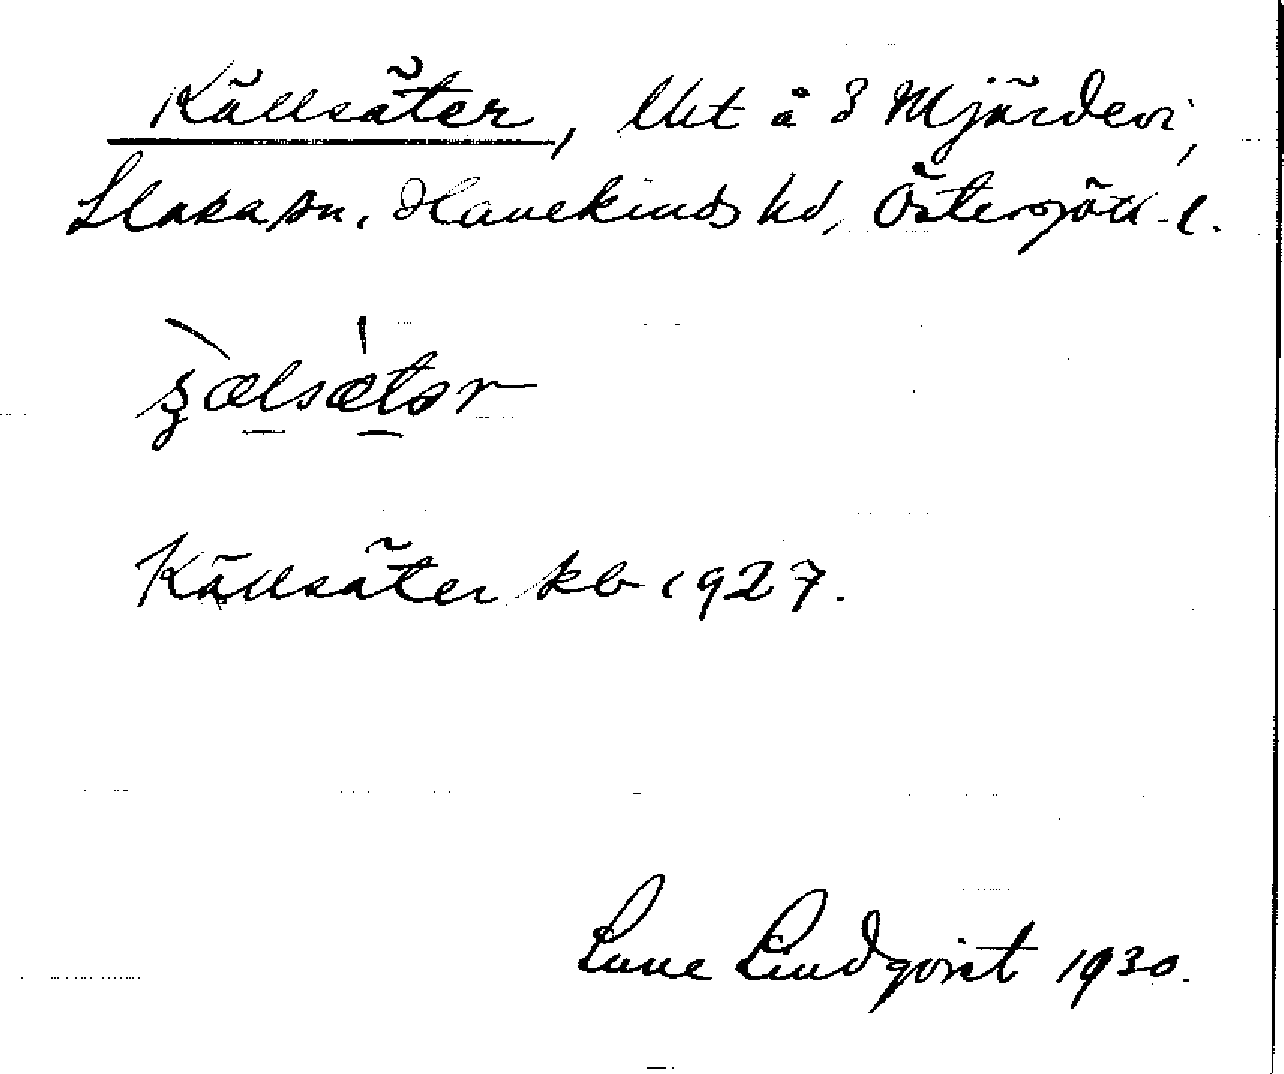 Källsäter, lht å 3 Mjärdevi,
Slaka sn, Hanekinds hd, Östergötl. l.
Källsäter kb 1927.
Sune Lindqvist 1930.